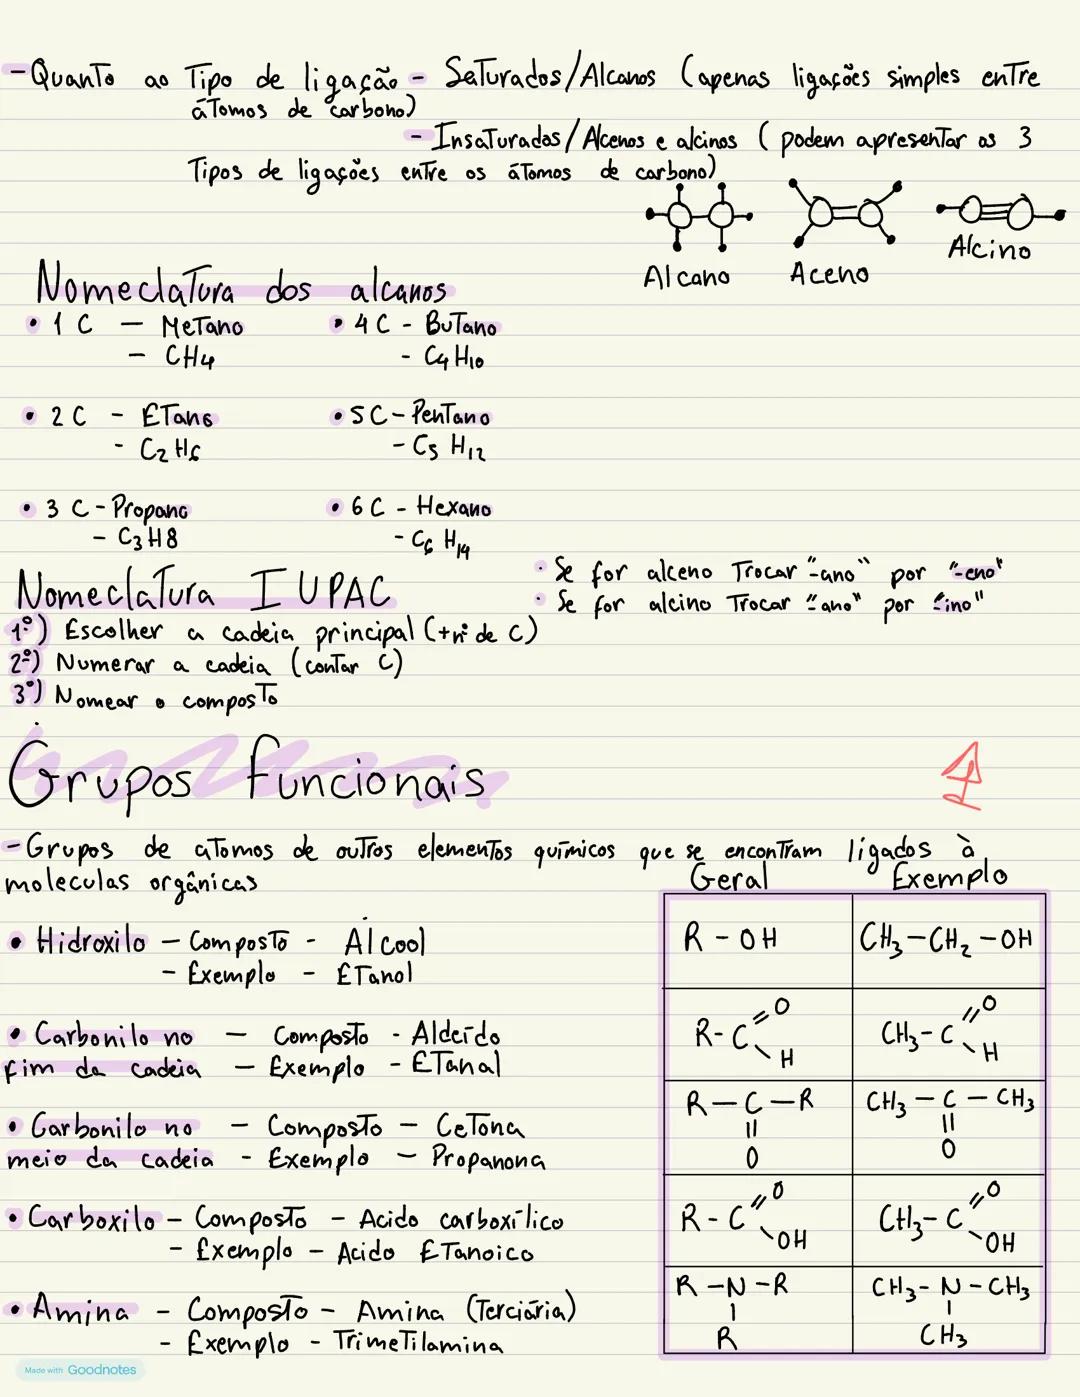 -Quanto ao Tipo de ligação - Saturados/Alcanos (apenas ligações simples entre
átomos de carbono)
- Insaturados/Alcenos e alcinos (podem apresentar os 3
Tipos de ligações entre os átomos de carbono)
Alcano Aceno Alcino
Nomeclatura dos alcanos
• 1 C - Metano • 4 C - Butano
- CH4 - C4 H10
• 2 C - Etano • 5 C - Pentano
- C2 H6 - C5 H12
• 3 C - Propano • 6 C - Hexano
- C3 H8 - C6 H14
• Se for alceno Trocar "-ano" por "-eno"
Nomeclatura IUPAC
• Se for alcino Trocar "-ano" por "-ino"
1º) Escolher a cadeia principal (+nº de C)
2º) Numerar a cadeia (contar C)
3º) Nomear o composto
Grupos funcionais
-Grupos de atomos de outros elementos químicos que se encontram ligados à
moleculas orgânicas
Geral Exemplo
• Hidroxilo - Composto - Álcool
- Exemplo - Etanol
R - OH CH3-CH2-OH
• Carbonilo no - Composto - Aldeído
fim da cadeia - Exemplo - Etanal
R-C=O CH3-C=O
H H
• Carbonilo no - Composto - Cetona
meio da cadeia - Exemplo - Propanona
R-C-R CH3-C-CH3
O O
• Carboxilo - Composto - Acido carboxílico
- Exemplo - Acido Etanoico
R-C=O CH3-C=O
OH OH
• Amina - Composto - Amina (Terciária)
- Exemplo - Trimetilamina
R-N-R CH3-N-CH3
R CH3
Made with Goodnotes